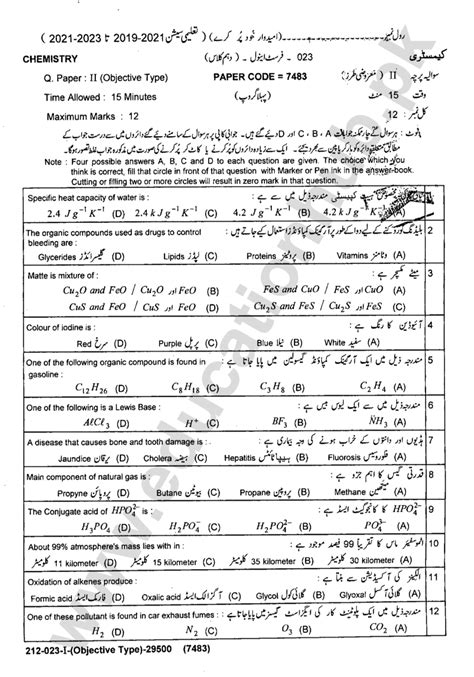 رول نمبر ۔۔۔۔ (امیدوار خود پُر کرے) (تعلیمی سیشن 2021-2019 تا 2023-2021)
CHEMISTRY 023 - فرسٹ اینول - (دہم کلاس) کیمسٹری
Q. Paper : II (Objective Type) PAPER CODE = 7483 سوالیہ پرچہ : II (معروضی طرز)
Time Allowed : 15 Minutes (پہلا گروپ) وقت : 15 منٹ
Maximum Marks : 12 کل نمبر : 12
نوٹ : ہر سوال کے چار ممکنہ جوابات A ، B ، C اور D دیئے گئے ہیں۔ جوابی کاپی پر ہر سوال کے سامنے دیئے گئے دائروں میں سے درست جواب کے
مطابق متعلقہ دائرہ کو مارکر یا پین سے بھر دیجئے۔ ایک سے زیادہ دائروں کو پُر کرنے یا کاٹ کر پُر کرنے کی صورت میں مذکورہ جواب غلط تصور ہو گا۔
Note : Four possible answers A, B, C and D to each question are given. The choice which you
think is correct, fill that circle in front of that question with Marker or Pen ink in the answer-book.
Cutting or filling two or more circles will result in zero mark in that question.
Specific heat capacity of water is :
2.4 Jg⁻¹K⁻¹ (D) 2.4 kJg⁻¹K⁻¹ (C) 4.2 Jg⁻¹K⁻¹ (B) 4.2 kJg⁻¹K⁻¹ (A)
The organic compounds used as drugs to control 2
bleeding are :
Glycerides گلیسرائڈز (D) Lipids لپڈز (C) Proteins پروٹینز (B) Vitamins وٹامنز (A)
Matte is mixture of : میٹے مکسچر ہے : 3
Cu₂O and FeO / Cu₂O اور FeO (B) FeS and CuO / FeS اور CuO (A)
CuS and FeO / CuS اور FeO (D) Cu₂S and FeS / Cu₂S اور FeS (C)
Colour of iodine is : آئیوڈین کا رنگ ہے : 4
Red سرخ (D) Purple پرپل (C) Blue نیلا (B) White سفید (A)
One of the following organic compound is found in مندرجہ ذیل میں ایک آرگینک کمپاؤنڈ گیسولین میں پایا جاتا ہے : 5
gasoline :
C₁₂H₂₆ (D) C₈H₁₈ (C) C₃H₈ (B) C₂H₄ (A)
One of the following is a Lewis Base : مندرجہ ذیل میں سے ایک لیوس بیس ہے : 6
AlCl₃ (D) H⁺ (C) BF₃ (B) NH₃ (A)
A disease that causes bone and tooth damage is : ہڈیوں اور دانتوں کے خراب ہونے کی وجہ بیماری ہے : 7
Jaundice یرقان (D) Cholera ہیضہ (C) Hepatitis ہیپاٹائٹس (B) Fluorosis فلوروسس (A)
Main component of natural gas is : قدرتی گیس کا اہم جزو ہے : 8
Propyne پروپائن (D) Butane بیوٹین (C) Propane پروپین (B) Methane میتھین (A)
The Conjugate acid of HPO₄²⁻ is : HPO₄²⁻ کا کانجوگیٹ ایسڈ ہے : 9
H₃PO₄ (D) H₂PO₄⁻ (C) (B) PO₄³⁻ (A)
About 99% atmosphere's mass lies with in : 99 فیصد موجود ہے : 10
11 kilometer کلومیٹر (D) 15 kilometer کلومیٹر (C) 35 kilometer کلومیٹر (B) 30 kilometer کلومیٹر (A)
Oxidation of alkenes produce : الکینز کی آکسیڈیشن سے بنتا ہے : 11
Formic acid فارمک ایسڈ (D) Oxalic acid آگزالک ایسڈ (C) Glycol گلائی کول (B) Glyoxal گلائی آکسل (A)
One of these pollutant is found in car exhaust fumes : 12
H₂ (D) N₂ (C) O₃ (B) CO₂ (A)
212-023-I-(Objective Type)-29500 (7483)
www.educationinfo.pk